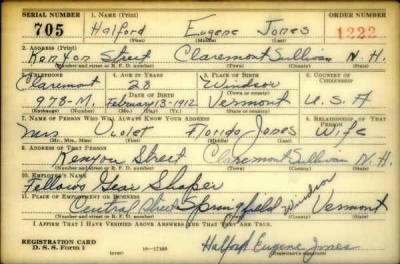 SERIAL NUMBER 1. NAME (Print) ORDER NUMBER
705 Halford Eugene Jones 1222
(First) (Middle) (Last)
2. ADDRESS (Print)
Kenyon Street Claremont Sullivan N. H.
(Number and street or R. F. D. number) (Town) (County) (State)
3. TELEPHONE 4. AGE IN YEARS 5. PLACE OF BIRTH 6. COUNTRY OF CITIZENSHIP
Claremont 28 Windsor
DATE OF BIRTH (Town or county)
978-M. February 13-1912 Vermont U. S. A
(Exchange) (Number) (Mo.) (Day) (Yr.) (State or country)
7. NAME OF PERSON WHO WILL ALWAYS KNOW YOUR ADDRESS 8. RELATIONSHIP OF THAT PERSON
Mrs Violet Florida Jones Wife
(Mr., Mrs., Miss) (First) (Middle) (Last)
9. ADDRESS OF THAT PERSON
Kenyon Street Claremont Sullivan N. H.
(Number and street or R. F. D. number) (Town) (County) (State)
10. EMPLOYER'S NAME
Fellows Gear Shaper
11. PLACE OF EMPLOYMENT OR BUSINESS
Central Street Springfield Windsor Vermont
(Number and street or R. F. D. number) (Town) (County) (State)
I AFFIRM THAT I HAVE VERIFIED ABOVE ANSWERS AND THAT THEY ARE TRUE.
REGISTRATION CARD
D. S. S. Form 1 (over) Halford Eugene Jones